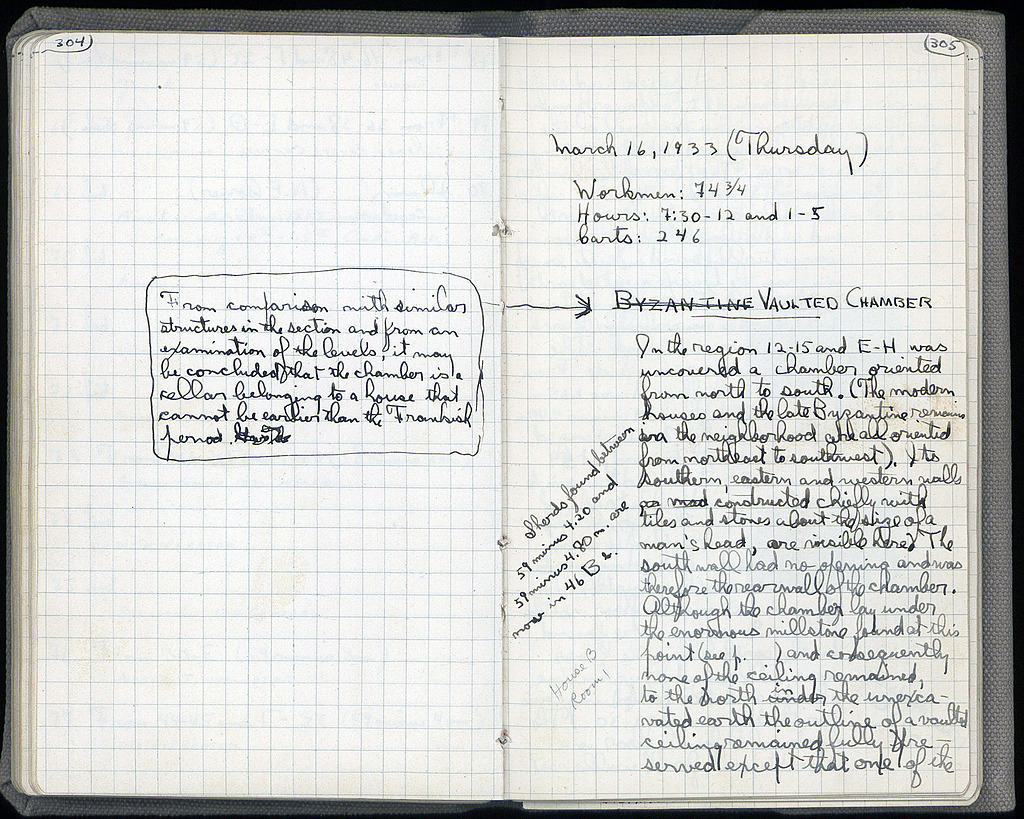 304
From comparison with similar
structures in the section and from an
examination of the levels, it may
be concluded that the chamber is a
cellar belonging to a house that
cannot be earlier than the Frankish
period
305
March 16, 1933 (Thursday)
Workmen: 74 3/4
Hours: 7:30-12 and 1-5
Carts: 246
BYZANTINE VAULTED CHAMBER
In the region 12-15 and E-H was
uncovered a chamber oriented
from north to south. (The modern
houses and the late Byzantine remains
in the neighborhood are all oriented
from northeast to southwest). Its
southern, eastern and western walls
constructed chiefly with
tiles and stones about the size of a
man's head, are visible here. The
south wall had no opening and was
therefore the rear wall of the chamber.
Although the chamber lay under
the enormous millstone found at this
point (see p. ) and consequently
none of the ceiling remained,
to the north under in the unexca-
vated earth the outline of a vaulted
ceiling remained fully pre-
served except that one of the
Sherds found between
59 minus 4.20 and
59 minus 4.80 m. are
now in 46 B 2.
House B
Room 1